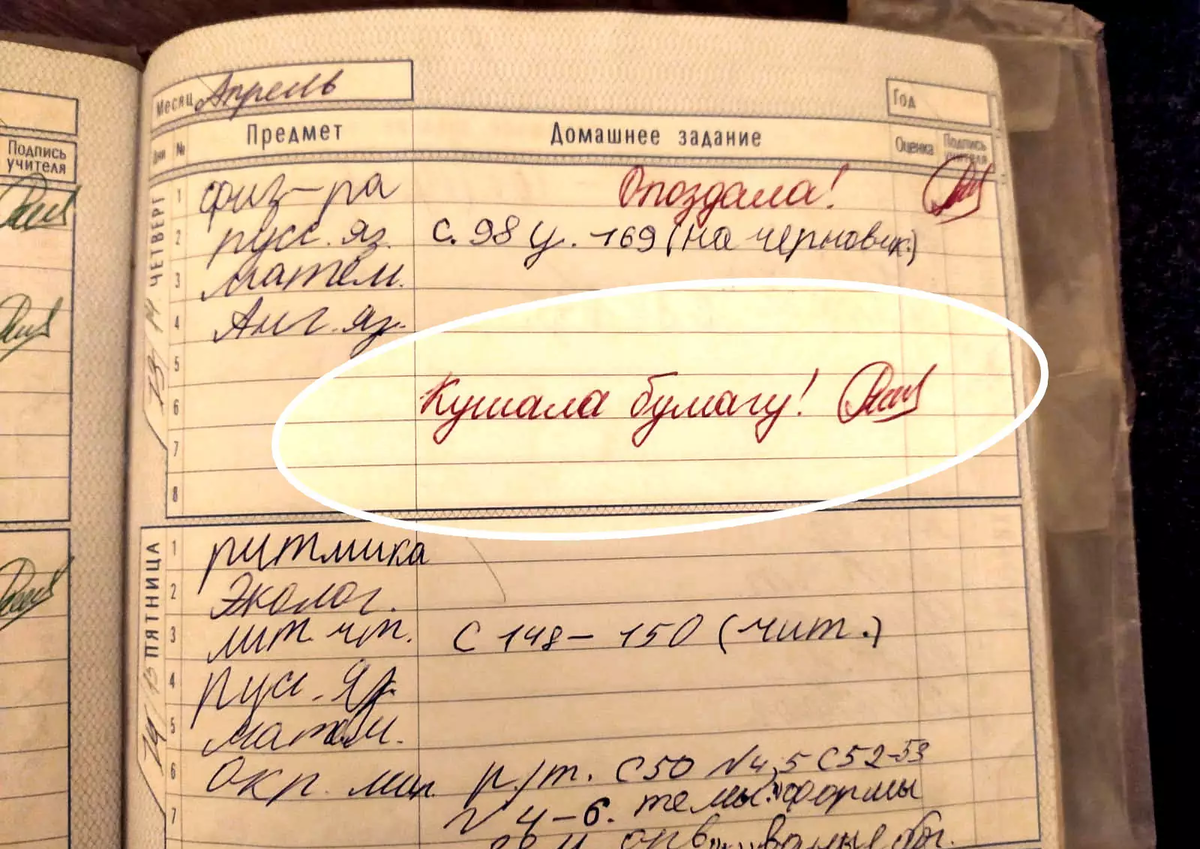 Месяц Апрель
Год
Дни № Предмет Домашнее задание Оценка Подпись учителя
Подпись учителя
ЧЕТВЕРГ
1 физ-ра Опоздала!
2 русс. яз. с. 98 у. 169 (на черновик.)
3 матем.
4 Анг. яз.
5
6 Кушала бумагу!
7
8
ПЯТНИЦА
1 ритмика
2 Эколог.
3 лит. чт. С 148-150 (чит.)
4 рус. яз.
5 матем.
6 окр. мир. р/т. С50 №4,5 С52-53
7 №4-6. темы: "формы